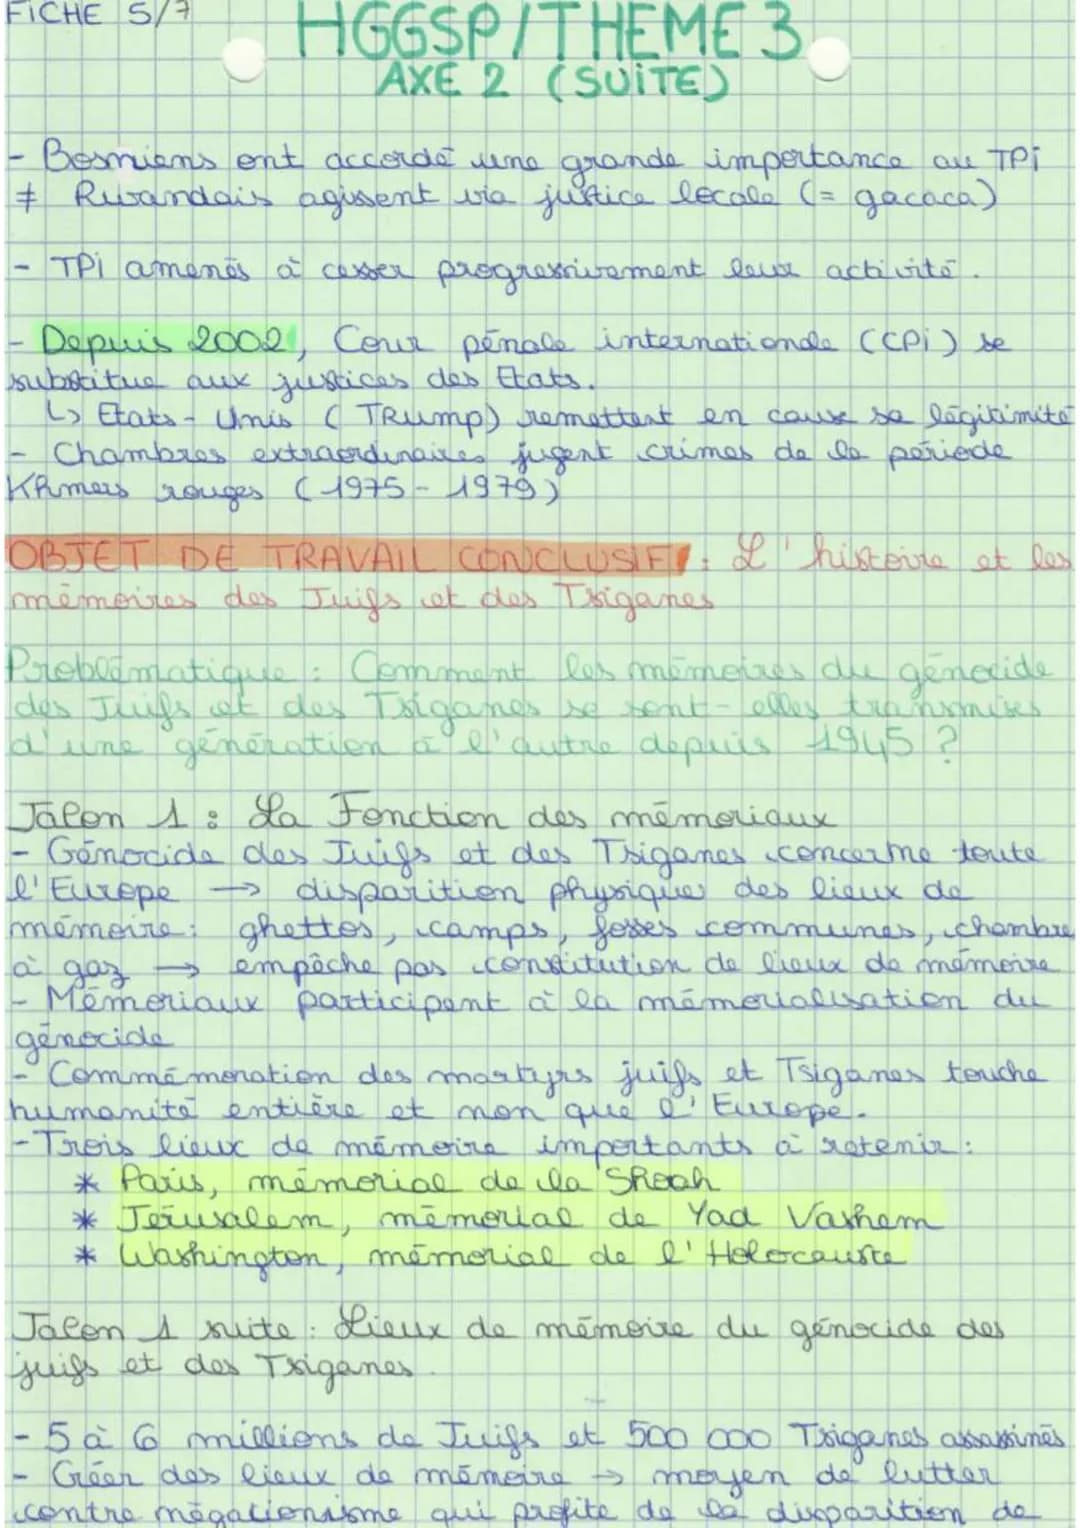 FICHE 5/7
HGGSP/THEME 3
AXE 2 (SUITE)
- Bosniens ont accordé une grande importance au TPi
≠ Rwandais agissent via justice locale (= gacaca)
- TPi amenés à cesser progressivement leur activité.
- Depuis 2002, Cour pénale internationale (CPi) se
substitue aux justices des Etats.
↳ Etats-Unis (Trump) remettent en cause sa légitimité
- Chambres extraordinaires jugent crimes de la période
Khmers rouges (1975-1979)
OBJET DE TRAVAIL CONCLUSIF : L'histoire et les
mémoires des Juifs et des Tsiganes
Problématique : Comment les mémoires du génocide
des Juifs et des Tsiganes se sont-elles transmises
d'une génération à l'autre depuis 1945 ?
Jalon 1 : La Fonction des mémoriaux
- Génocide des Juifs et des Tsiganes concerne toute
l'Europe → disparition physique des lieux de
mémoire : ghettos, camps, fosses communes, chambre
à gaz → empêche pas constitution de lieux de mémoire
- Mémoriaux participent à la mémorialisation du
génocide
- Commémoration des martyrs juifs et Tsiganes touche
humanité entière et non que l'Europe.
- Trois lieux de mémoire importants à retenir :
* Paris, mémorial de la Shoah
* Jérusalem, mémorial de Yad Vashem
* Washington, mémorial de l'Holocauste
Jalon 1 suite : Lieux de mémoire du génocide des
juifs et des Tsiganes.
- 5 à 6 millions de Juifs et 500 000 Tsiganes assassinés
- Créer des lieux de mémoire → moyen de lutter
contre négationisme qui profite de la disparition de